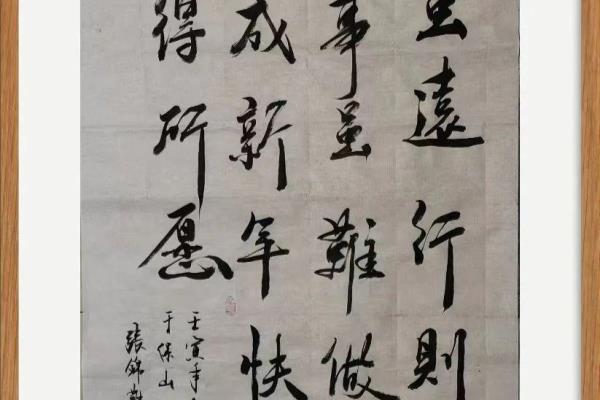 虽遠行則
事虽難做
成新年快
得所愿
壬寅年
于保山
張錦